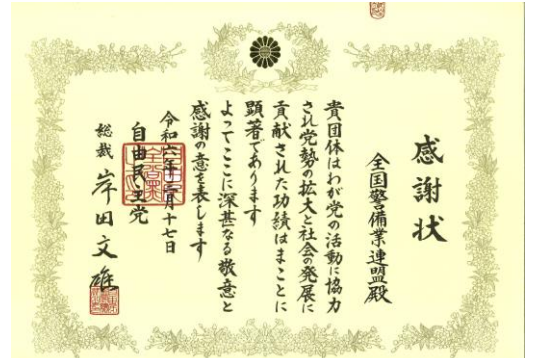 感謝状
全国警備業連盟殿
貴団体はわが党の活動に協力
され党勢の拡大と社会の発展に
貢献された功績はまことに
顕著であります
よってここに深甚なる敬意と
感謝の意を表します
令和六年三月十七日
自由民主党
総裁 岸田文雄